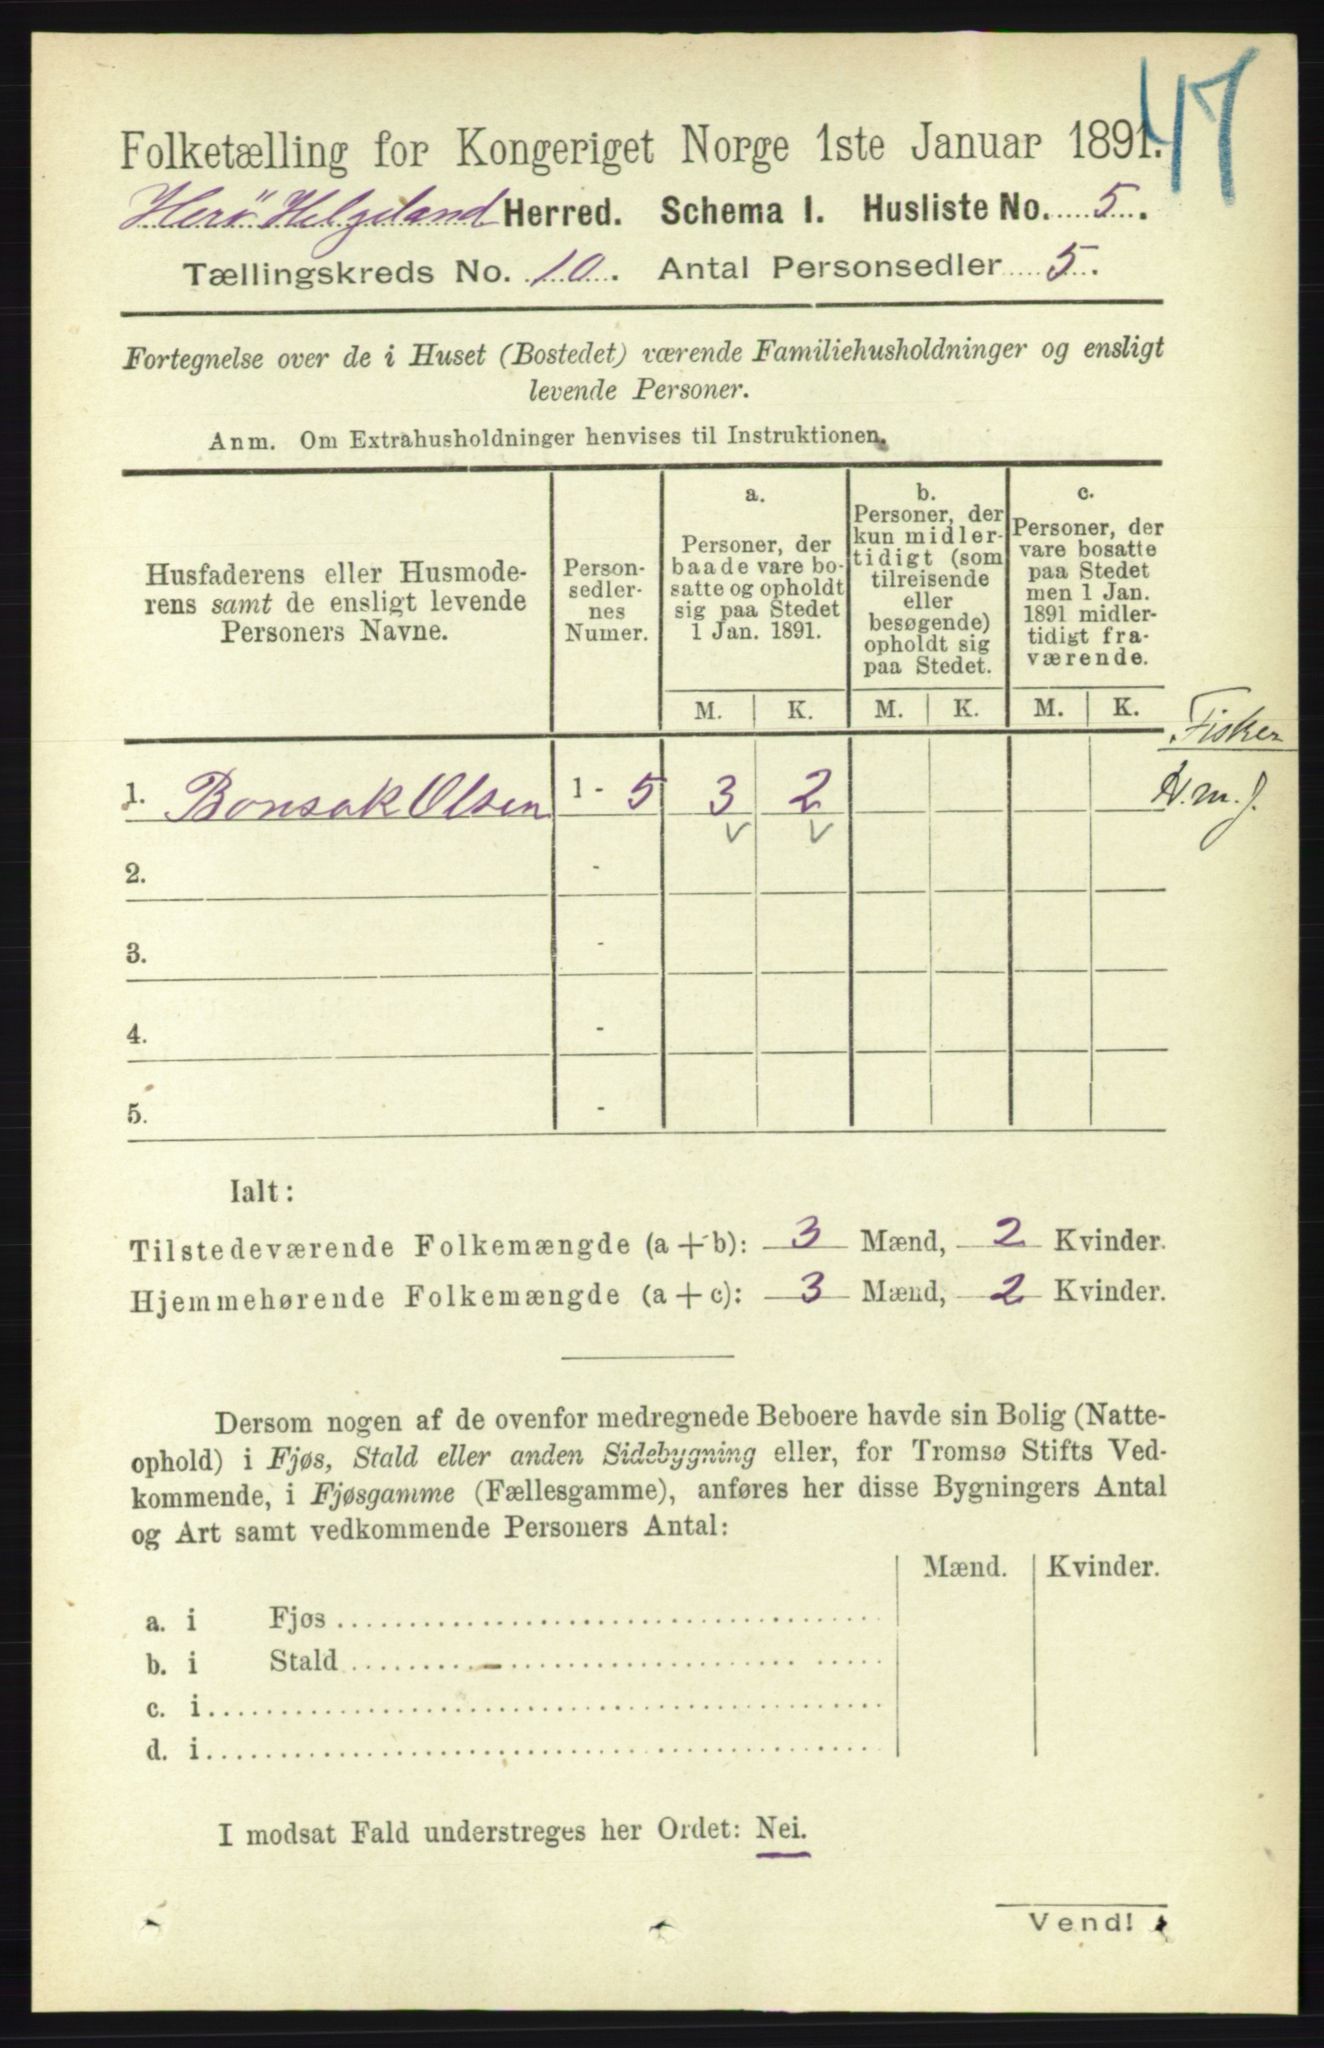 47
Folketælling for Kongeriget Norge 1ste Januar 1891.
Herö Helgeland Herred. Schema I. Husliste No. 5.
Tællingskreds No. 10. Antal Personsedler 5.
Fortegnelse over de i Huset (Bostedet) værende Familiehusholdninger og ensligt
levende Personer.
Anm. Om Extrahusholdninger henvises til Instruktionen.
Husfaderens eller Husmode-
rens samt de ensligt levende
Personers Navne.
Person-
sedler-
nes
Numer.
a.
Personer, der
baade vare bo-
satte og opholdt
sig paa Stedet
1 Jan. 1891.
b.
Personer, der
kun midler-
tidigt (som
tilreisende
eller
besøgende)
opholdt sig
paa Stedet.
c.
Personer, der
vare bosatte
paa Stedet
men 1 Jan.
1891 midler-
tidigt fra-
værende.
M. K. M. K. M. K.
Fisker
1. Bonsak Olsen 1 - 5 3 2 H.m.J.
2. -
3. -
4. -
5. -
Ialt:
Tilstedeværende Folkemængde (a + b): 3 Mænd, 2 Kvinder.
Hjemmehørende Folkemængde (a + c): 3 Mænd, 2 Kvinder.
Dersom nogen af de ovenfor medregnede Beboere havde sin Bolig (Natte-
ophold) i Fjøs, Stald eller anden Sidebygning eller, for Tromsø Stifts Ved-
kommende, i Fjøsgamme (Fællesgamme), anføres her disse Bygningers Antal
og Art samt vedkommende Personers Antal:
Mænd. Kvinder.
a. i Fjøs
b. i Stald
c. i
d. i
I modsat Fald understreges her Ordet: Nei.
Vend!